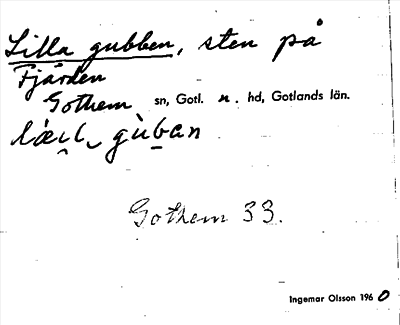 Lilla gubben, sten på
Fjärden
Gothem sn, Gotl. n. hd, Gotlands län.
gùban
Gothem 33.
Ingemar Olsson 1960